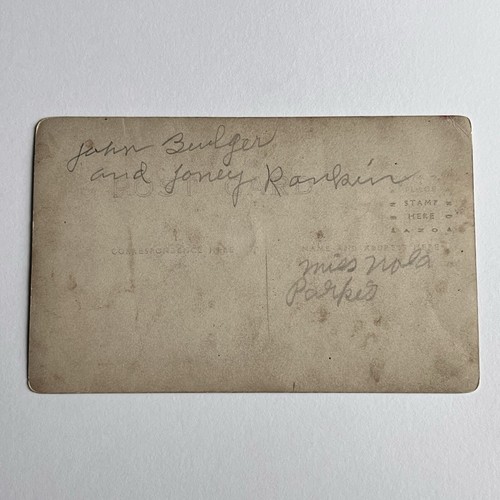 John Bulger
and Joney Rankin
POST CARD
PLACE
STAMP
HERE
CORRESPONDENCE HERE
NAME AND ADDRESS HERE
Miss Nola
Parkes